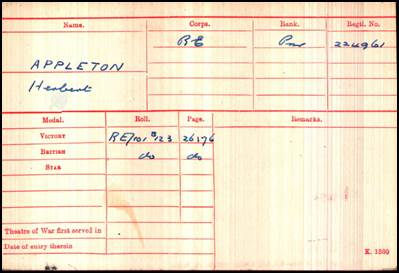 Name. Corps. Rank. Regtl. No.
RE Pnr 224961
APPLETON
Herbert
Medal. Roll. Page. Remarks.
VICTORY RE/101 B 123 26176
BRITISH do do
STAR
Theatre of War first served in
Date of entry therein
K. 1380